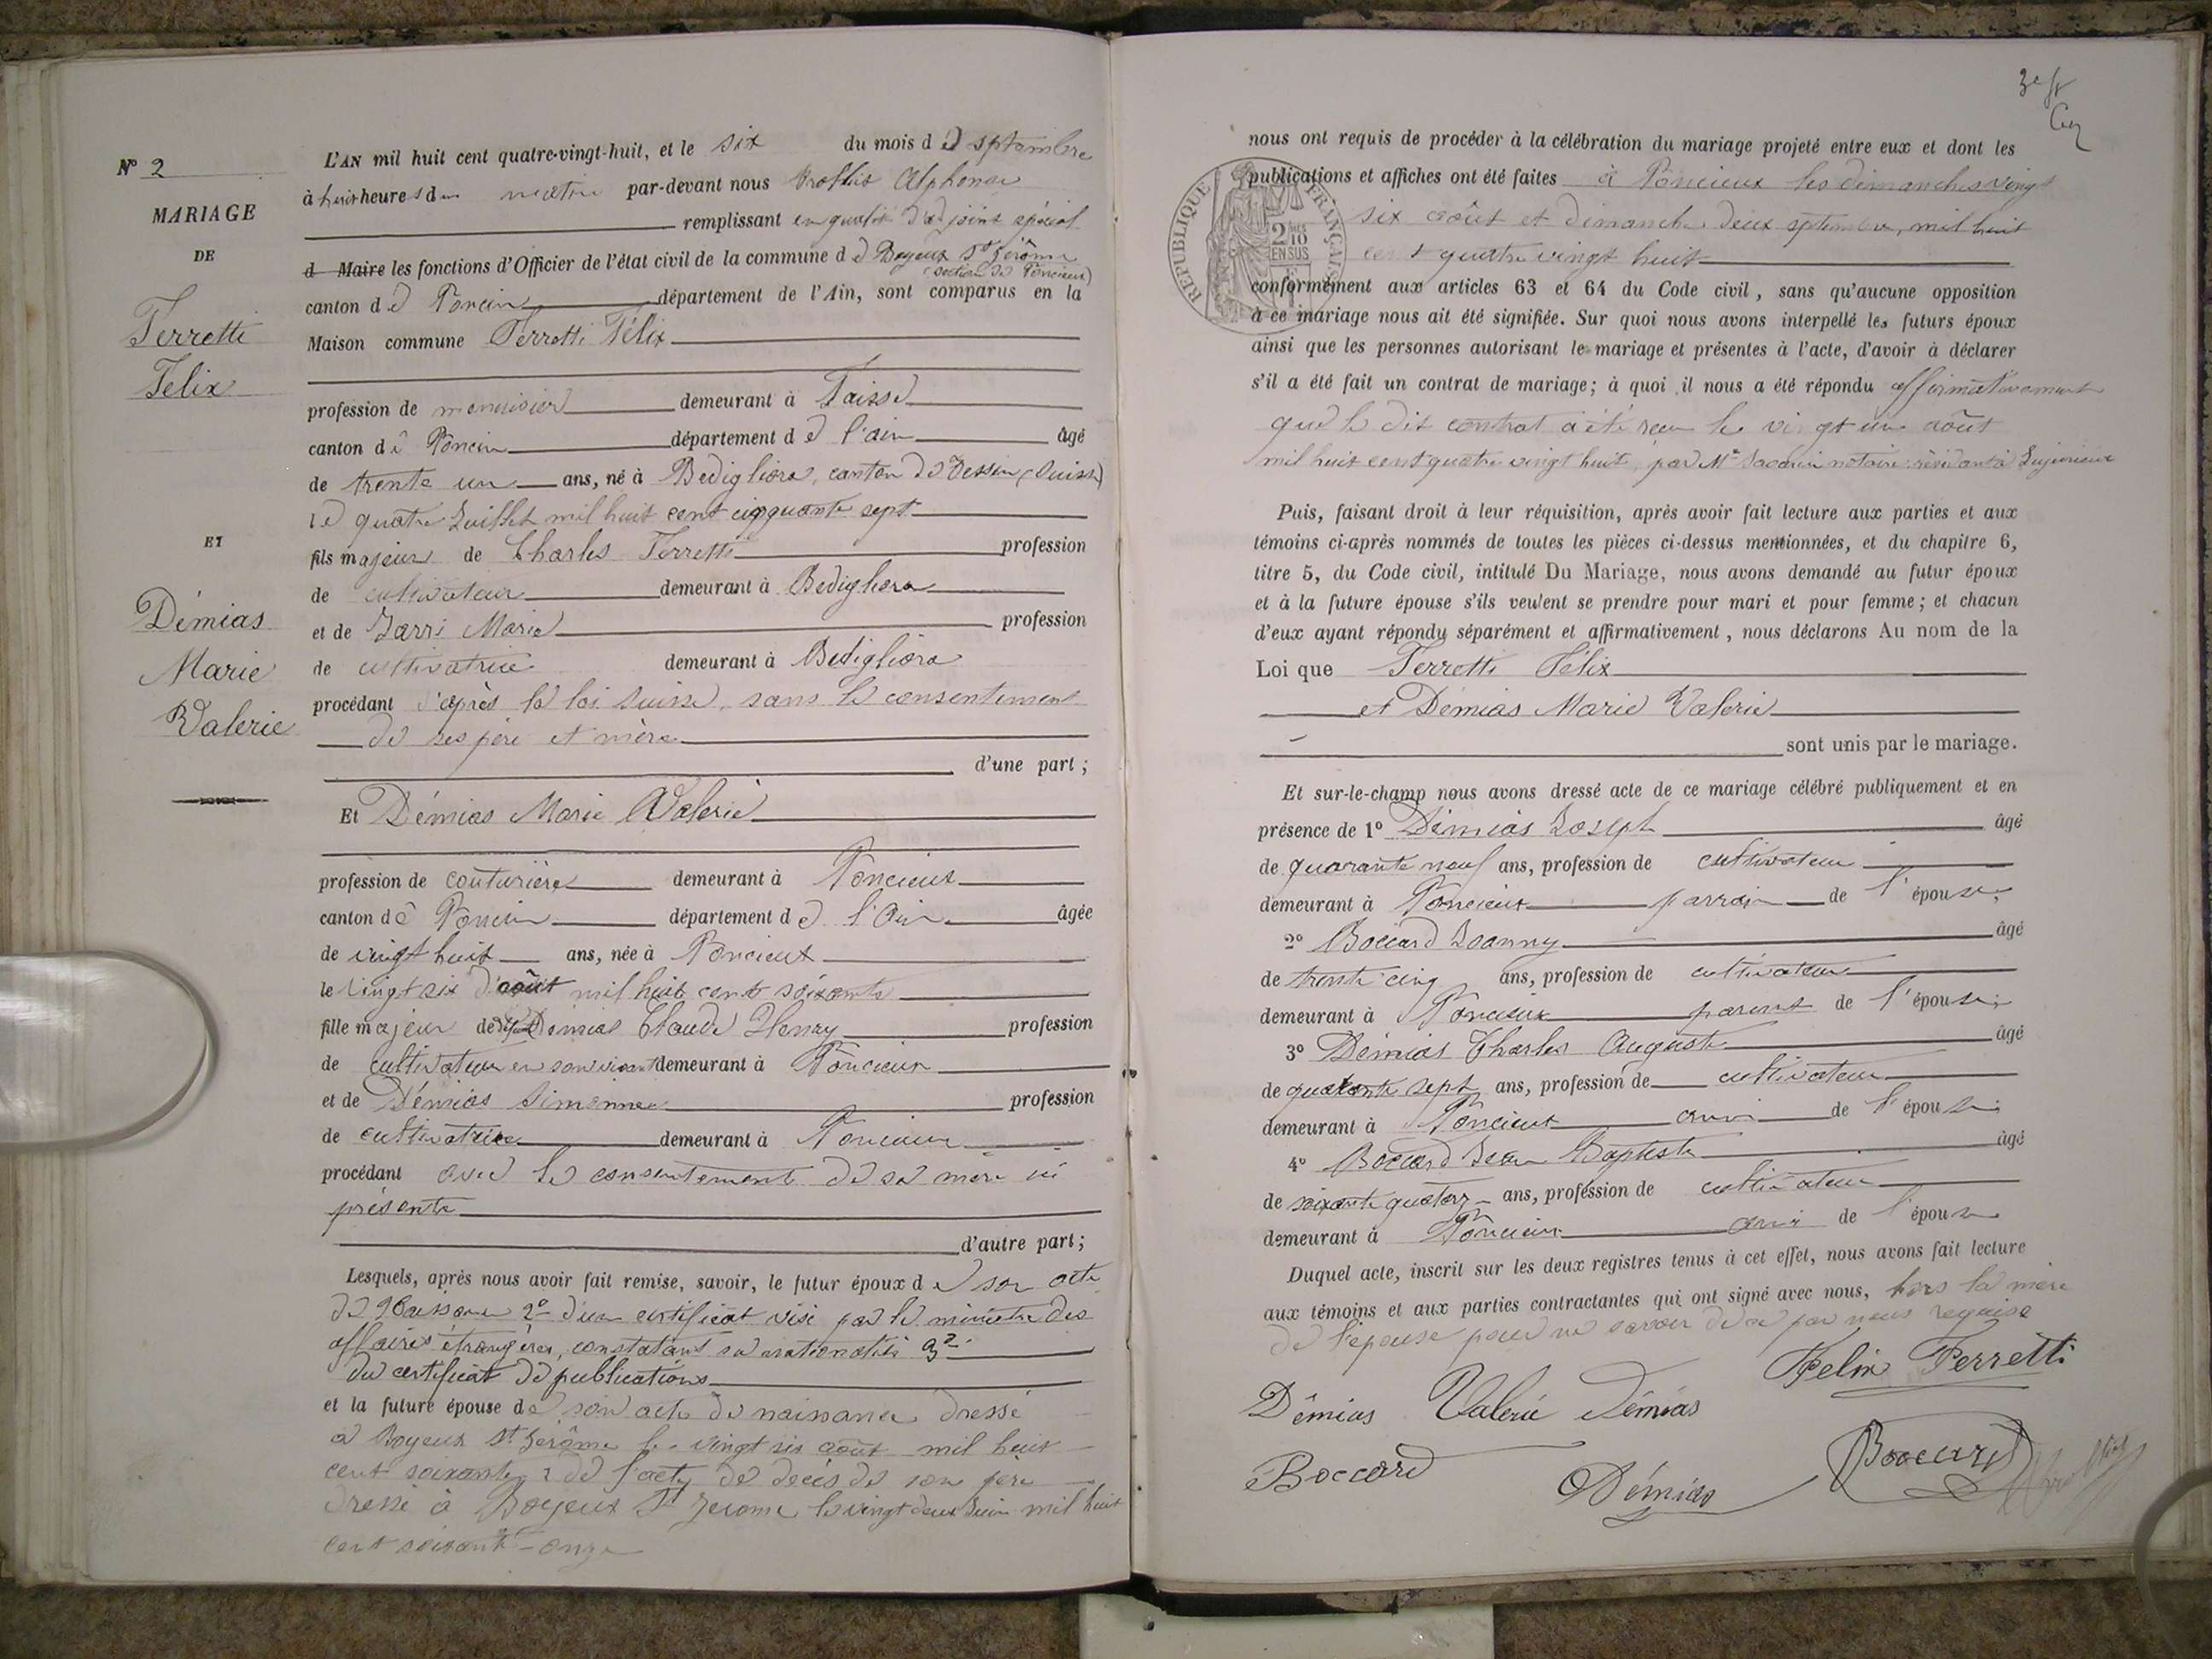 N° 2
MARIAGE
DE
Ferretti
Felix
ET
Démias
Marie
Valerie
L'AN mil huit cent quatre-vingt-huit, et le six du mois d e septembre
à huit heures du matin par-devant nous Alphonse
remplissant en qualité d'adjoint spécial
d Maire les fonctions d'Officier de l'état civil de la commune d e Boyeux St Jérôme
(section de Poncieux)
canton d e Poncin département de l'Ain, sont comparus en la
Maison commune Ferretti Félix
profession de menuisier demeurant à
canton d e Poncin département d e l'ain âgé
de trente un ans, né à Bedigliora, canton de Tessin (Suisse)
le quatre Juillet mil huit cent cinquante sept
fils majeur de Charles Ferretti profession
de cultivateur demeurant à Bedigliora
et de Zarri Marie profession
de cultivatrice demeurant à Bedigliora
procédant d'après la loi suisse, sans le consentement
de ses père et mère
d'une part ;
Et Démias Marie Valerie
profession de couturière demeurant à Poncieux
canton d e Poncin département d e l'Ain âgée
de vingt huit ans, née à Poncieux
le vingt six d'août mil huit cent soixante
fille majeur de Démias Claude Henry profession
de cultivateur en son vivant demeurant à Poncieux
et de Démias Simonne profession
de cultivatrice demeurant à Poncieux
procédant avec le consentement de sa mère ici
présente
d'autre part ;
Lesquels, après nous avoir fait remise, savoir, le futur époux d e son acte
de naissance 2° d'un certificat visé par le ministre des
affaires étrangères, constatant sa nationalité 3°
du certificat de publications
et la future épouse de son acte de naissance dressé
à Boyeux St Jerôme le vingt six août mil huit
cent soixante, 2 de l'acte de décès de son père
dressé à Boyeux St Jerome le vingt deux Juin mil huit
cent soixante-onze
nous ont requis de procéder à la célébration du mariage projeté entre eux et dont les
publications et affiches ont été faites à Poncieux les dimanches vingt
six août et dimanche deux septembre, mil huit
cent quatre vingt huit
REPUBLIQUE FRANÇAISE
2 10
EN SUS
conformément aux articles 63 et 64 du Code civil, sans qu'aucune opposition
à ce mariage nous ait été signifiée. Sur quoi nous avons interpellé les futurs époux
ainsi que les personnes autorisant le mariage et présentes à l'acte, d'avoir à déclarer
s'il a été fait un contrat de mariage ; à quoi il nous a été répondu affirmativement
que le dit contrat a été reçu le vingt un août
mil huit cent quatre vingt huit, par Me Savarin notaire résidant à Jujurieux
Puis, faisant droit à leur réquisition, après avoir fait lecture aux parties et aux
témoins ci-après nommés de toutes les pièces ci-dessus mentionnées, et du chapitre 6,
titre 5, du Code civil, intitulé Du Mariage, nous avons demandé au futur époux
et à la future épouse s'ils veulent se prendre pour mari et pour femme ; et chacun
d'eux ayant répondu séparément et affirmativement, nous déclarons Au nom de la
Loi que Ferretti Félix
et Démias Marie Valerie
sont unis par le mariage.
Et sur-le-champ nous avons dressé acte de ce mariage célébré publiquement et en
présence de 1° Démias Joseph âgé
de quarante neuf ans, profession de cultivateur
demeurant à Poncieux parrain de l'épouse ;
2° Boccard Joanny âgé
de trente cinq ans, profession de cultivateur
demeurant à Poncieux parent de l'épouse ;
3° Démias Charles Auguste âgé
de quarante sept ans, profession de cultivateur
demeurant à Poncieux ami de l'épouse ;
4° Boccard Jean Baptiste âgé
de soixante quatorz ans, profession de cultivateur
demeurant à Poncieux ami de l'épouse
Duquel acte, inscrit sur les deux registres tenus à cet effet, nous avons fait lecture
aux témoins et aux parties contractantes qui ont signé avec nous, hors la mère
de l'épouse pour ne savoir de ce par nous requise
Felix Ferretti
Démias Valerie Démias
Boccard Démias Boccard